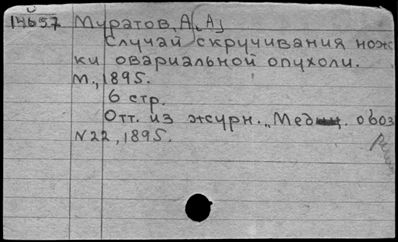 14657 Муратов, А[.А]
Случай скручивания нож
ки овариальной опухоли.
М., 1895.
6 стр.
Отт. из журн. „Мед. обоз
N22, 1895.